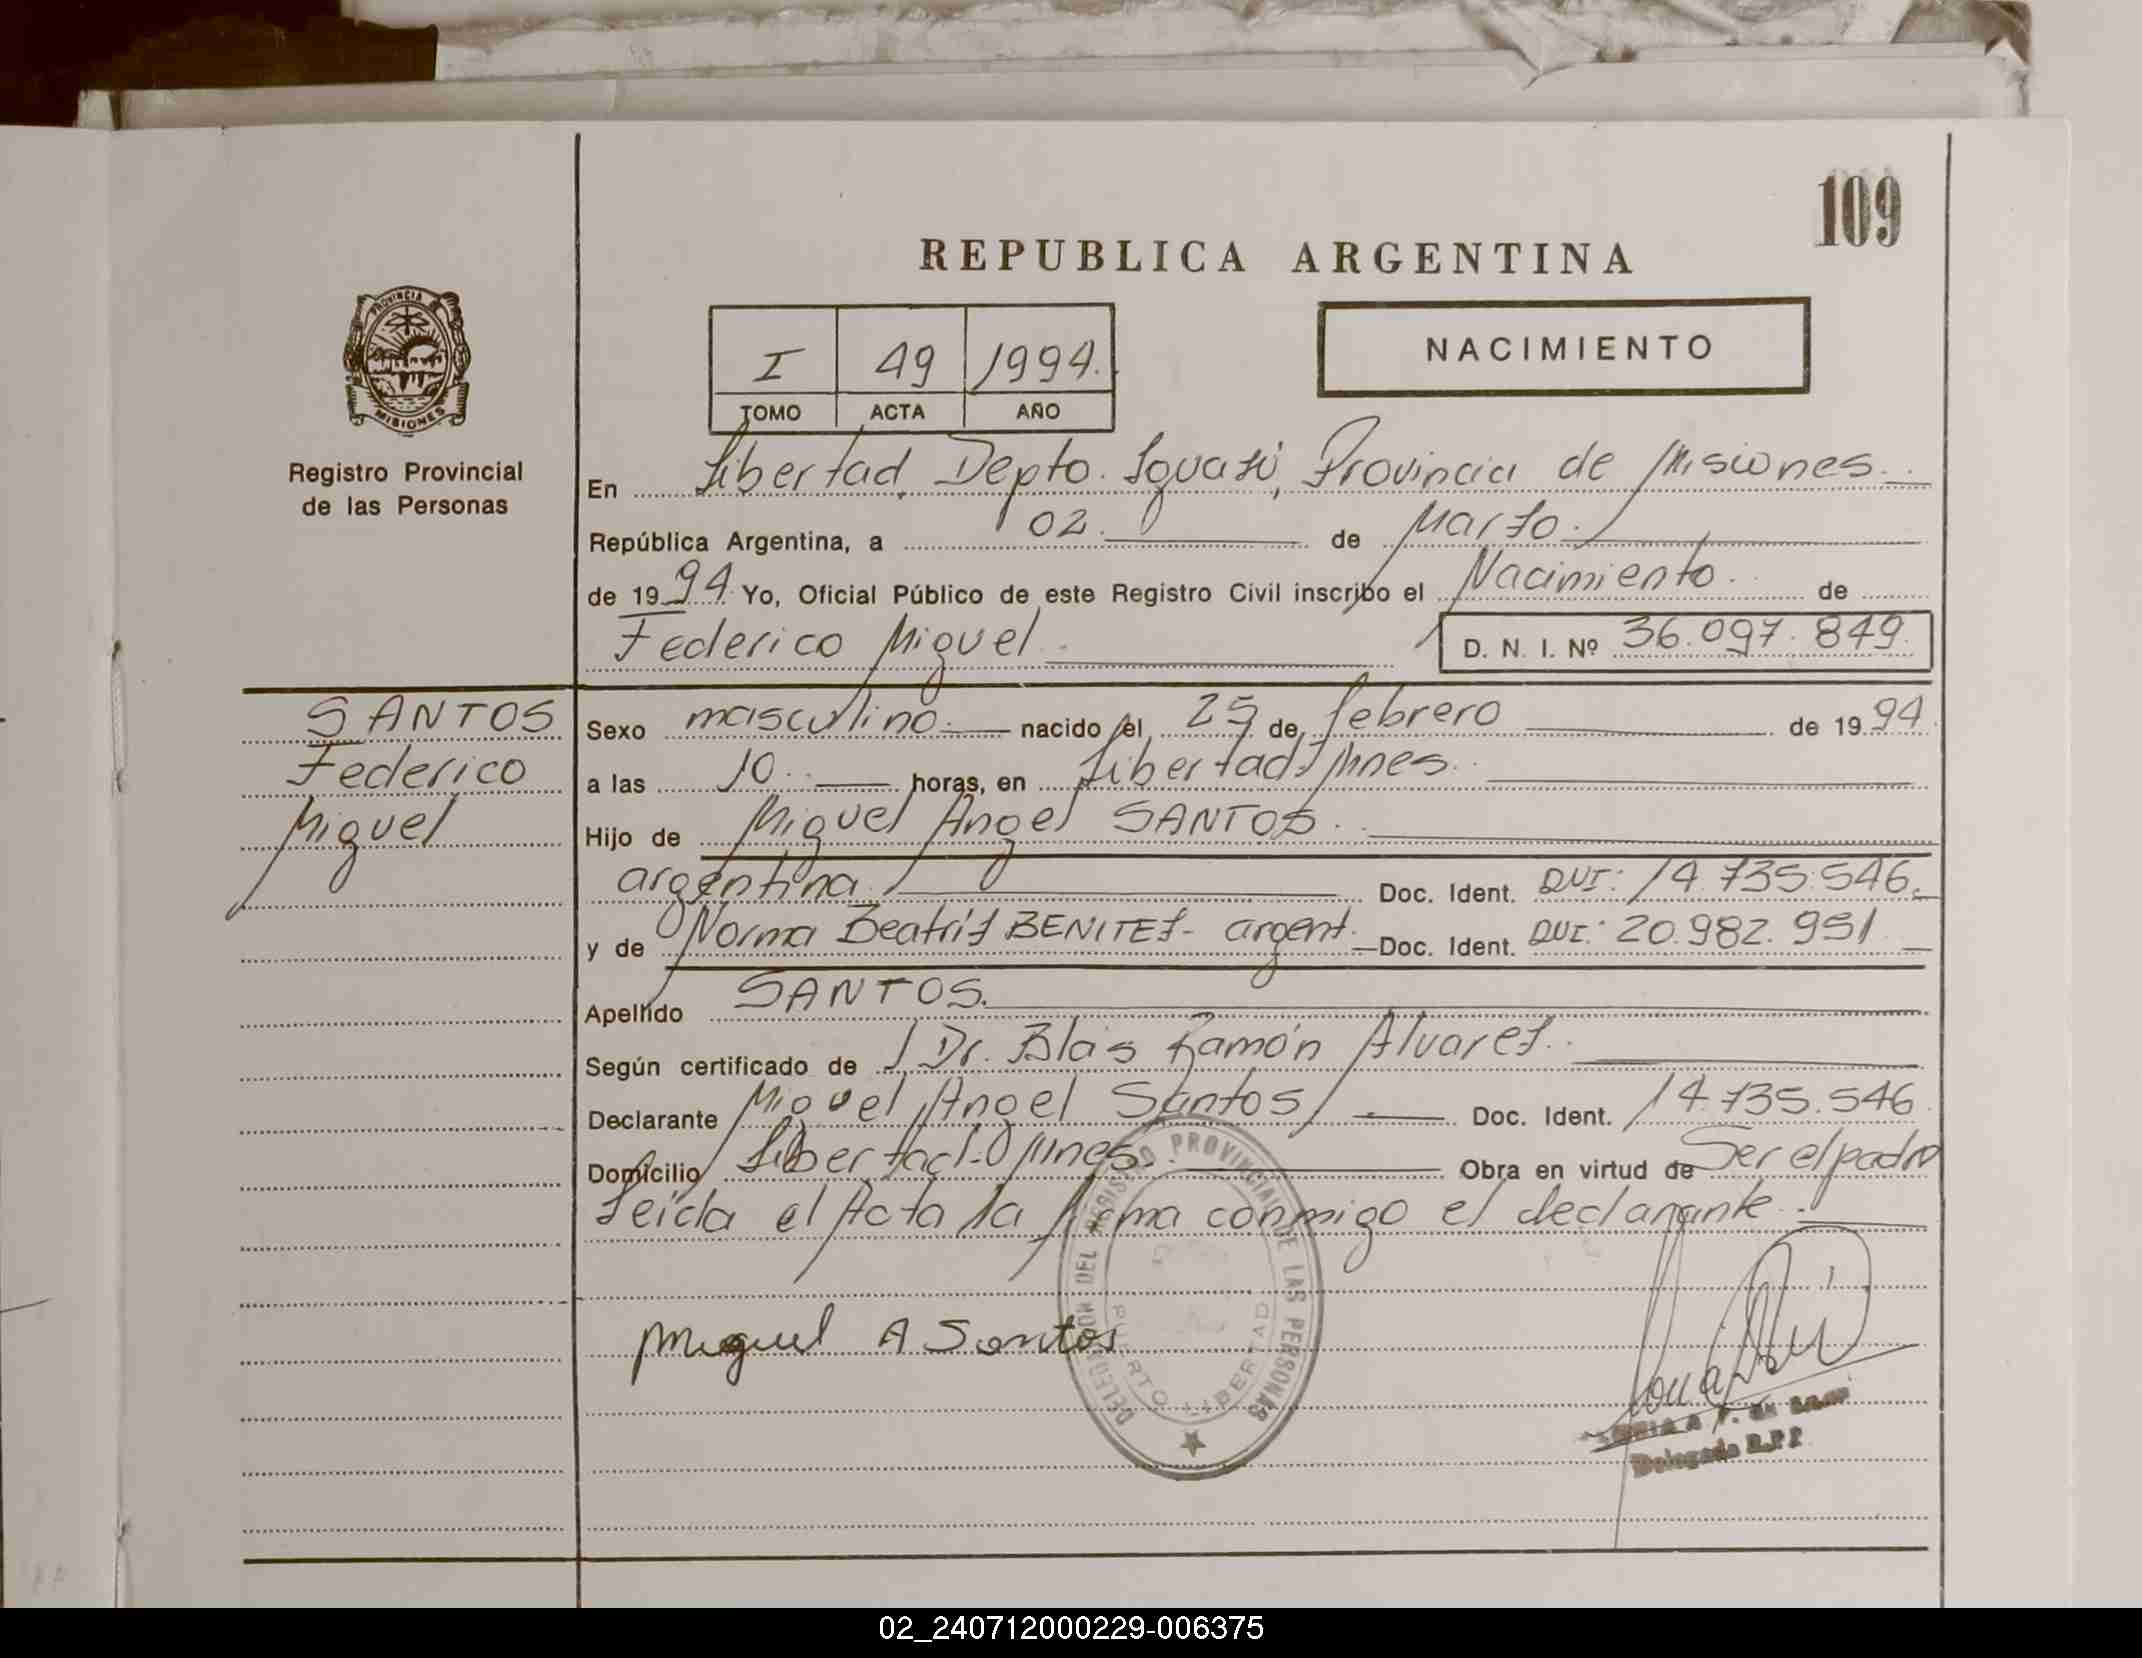 109
REPUBLICA ARGENTINA
I 49 1994.
TOMO ACTA AÑO
NACIMIENTO
PROVINCIA
MISIONES
Registro Provincial
de las Personas
En Libertad, Depto. Iguazú, Provincia de Misiones.
República Argentina, a 02. de Marzo.
de 1994 Yo, Oficial Público de este Registro Civil inscribo el Nacimiento. de
Federico Miguel
D. N. I. Nº 36.097.849.
SANTOS
Federico
Miguel
Sexo masculino. nacido el 25 de febrero de 1994.
a las 10. horas, en Libertad-Mnes.
Hijo de Miguel Angel SANTOS.
argentina. Doc. Ident. DUI: 14.735.546.
y de Norma Beatriz BENITEZ- argent. Doc. Ident. DUI: 20.982.951
Apellido SANTOS.
Según certificado de Dr. Blás Ramón Alvarez.
Declarante Miguel Angel Santos Doc. Ident. 14.735.546
Domicilio Libertad-Mnes. Obra en virtud de Ser el padre
Leída el Acta la firma conmigo el declarante.
Miguel A Santos
DELEGACION DEL REGISTRO PROVINCIAL DE LAS PERSONAS
PUERTO LIBERTAD
Delegada R.P.P
02_240712000229-006375